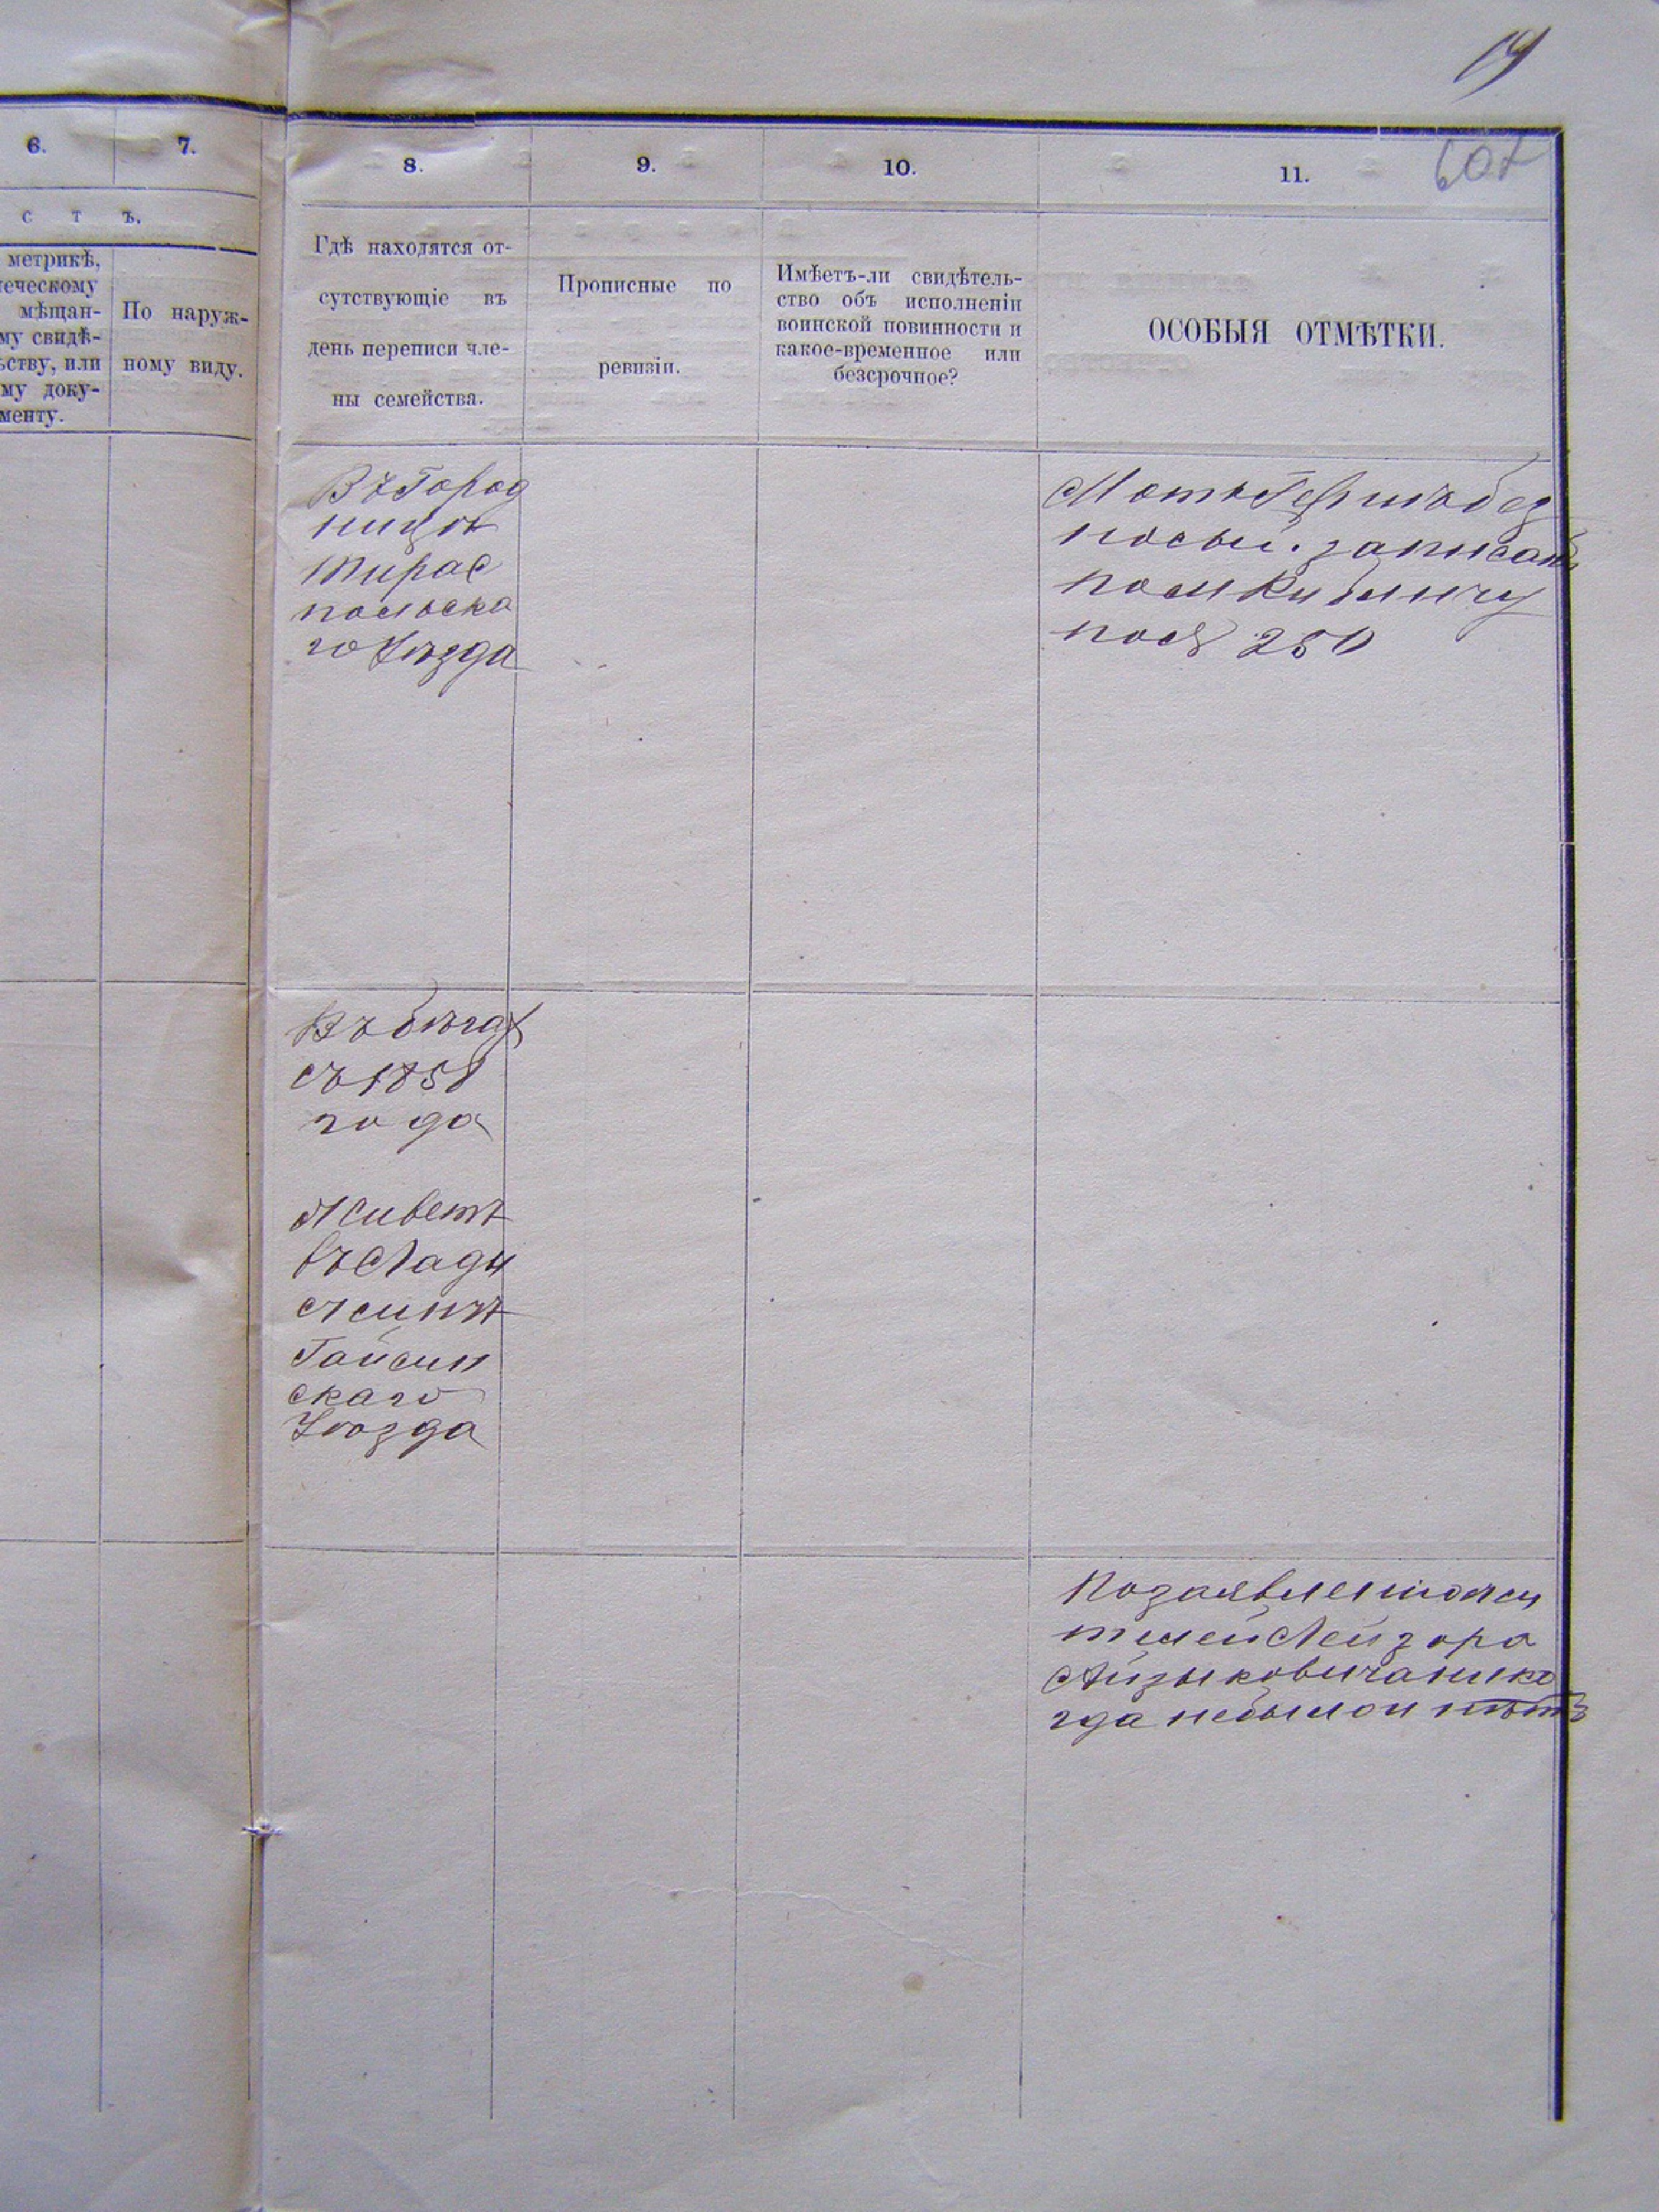 19
6.
7.
8.
9.
10.
11.
с т ъ.
метрикѣ,
еческому
мѣщан-
му свидѣ-
ьству, или
му доку-
менту.
По наруж-
ному виду.
Гдѣ находятся от-
сутствующіе въ
день переписи чле-
ны семейства.
Прописные по
ревизіи.
Имѣетъ-ли свидѣтель-
ство объ исполненіи
воинской повинности и
какое-временное или
безсрочное?
ОСОБЫЯ ОТМѢТКИ.
Въ Город
ницѣ
Тирас
польска
го Уѣзда
записанъ
250
Въ бѣгах
съ 1858
года
Живетъ
въ Лади
жинѣ
Гайсин
скаго
Уѣзда
По заявленію жи
телей Лейзора
Айзиковича нико
гда небыло и нѣтъ